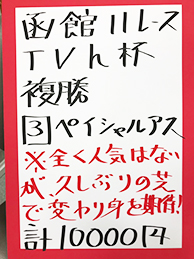 函館11レース
TVh杯
複勝
3ペイシャルアス
※全く人気はない
が、久しぶりの芝
で変わり身を期待!
計10000円